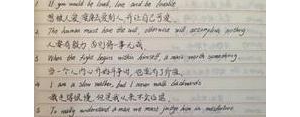 1. If you would be loved, love and be lovable
想被人爱,就要去爱别人,并让自己可爱.
2. The human must have the will, otherwise will accomplish nothing
人要有毅力,否则将一事无成.
3. When the fight begins within himself, a man's worth something
当一个人内心开始斗争时,他就有了价值.
4. I am a slow walker, but I never walk backwards
我走得很慢,但是我从来不会后退.
5. To really understand a man we must judge him in misfortune